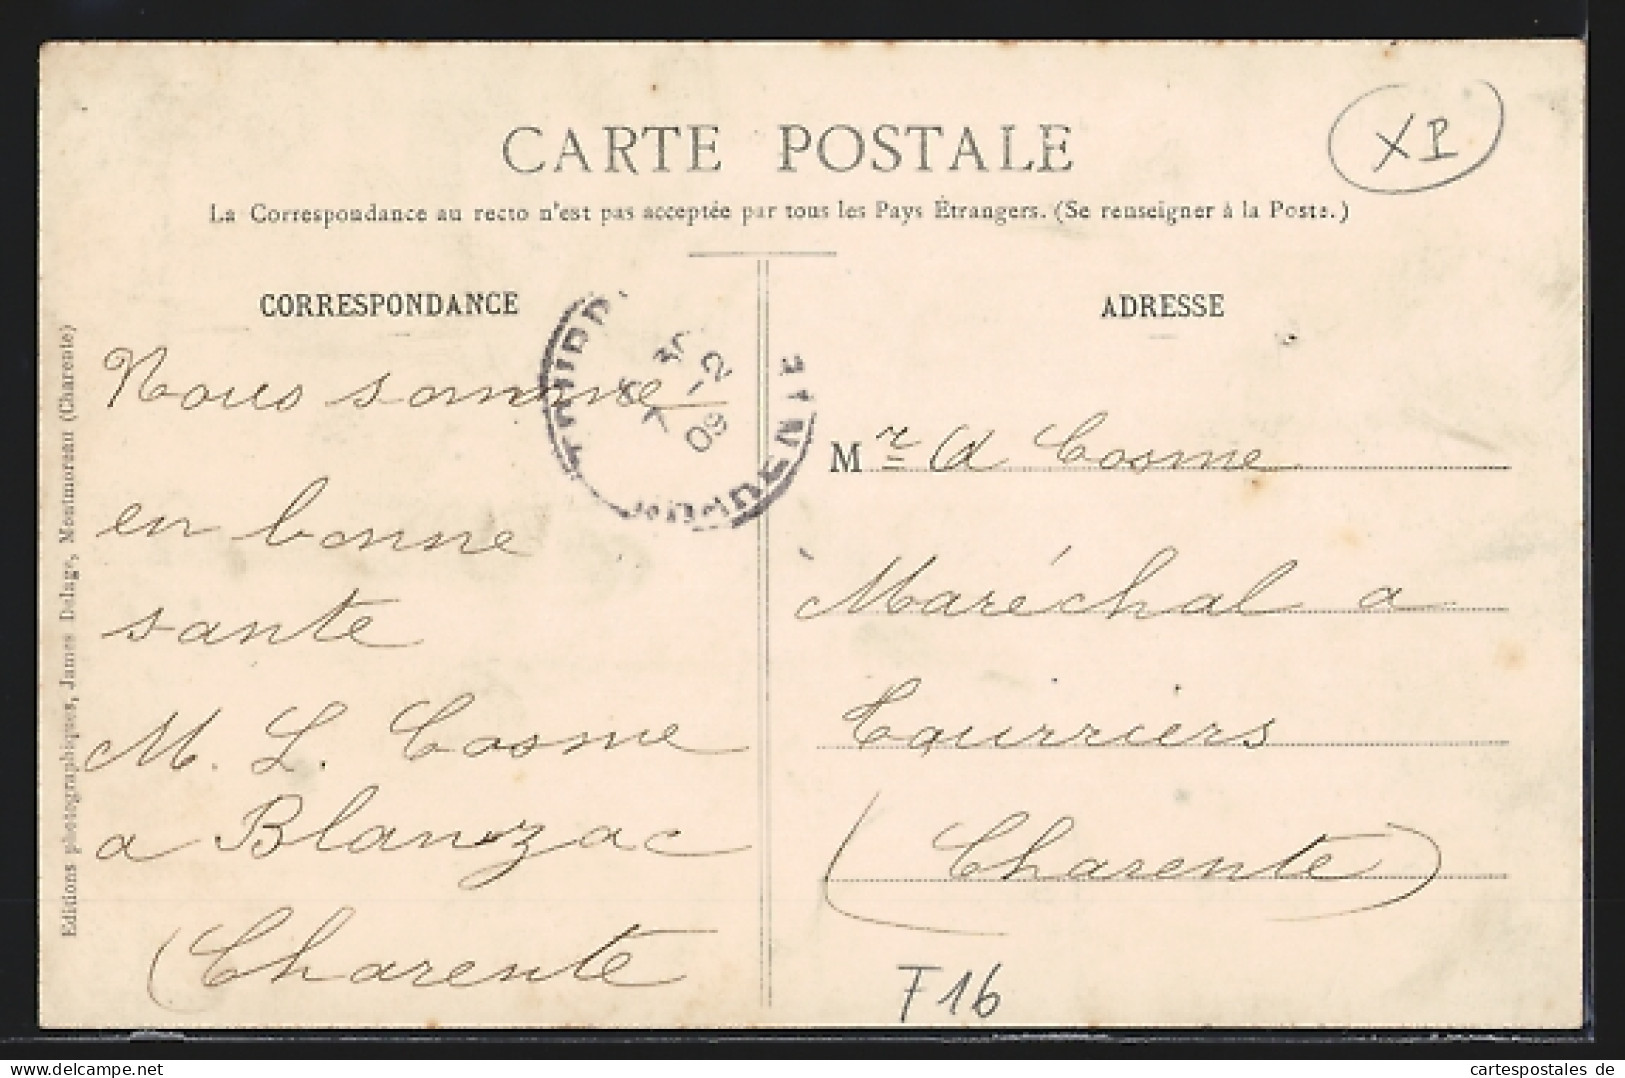 CARTE POSTALE
La Correspondance au recto n'est pas acceptée par tous les Pays Étrangers. (Se renseigner à la Poste.)
XI
CORRESPONDANCE
Nous somme
en bonne
sante
M. L. Cosme
a Blanzac
(Charente
7 -2
09
ADRESSE
Mr A Cosme
Maréchal a
Tourriers
(Charente)
F16
Editions photographiques, James Delage, Montmoreau (Charente)
cartespostales de